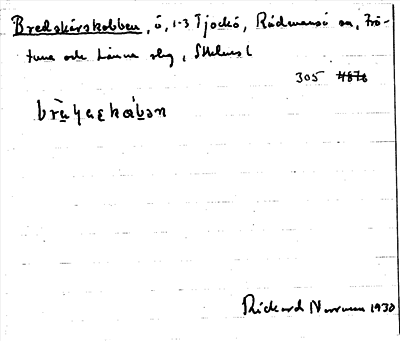 Bredskärskobben, ö, 1-3 Tjockö, Rådmansö sn, Frö-
tuna och Länna slg, Sthlms l
305 4876
Rickard Norman 1930